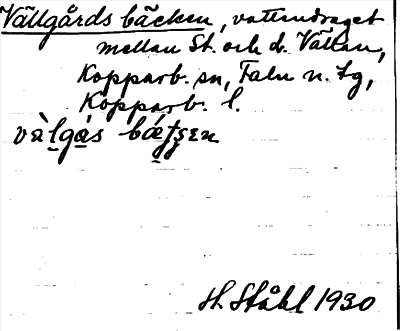 Vällgårds bäcken, vattendraget
mellan St. och L. Vällan,
Kopparb. sn, Falu n. tg,
Kopparb. l.
vàlgas bætsen
H. Ståhl 1930